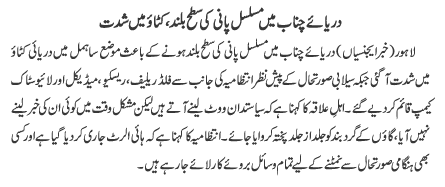 دریائے چناب میں مسلسل پانی کی سطح بلند، کٹاؤ میں شدت
لاہور (خبر ایجنسیاں) دریائے چناب میں مسلسل پانی کی سطح بلند ہونے کے باعث موضع ساہمل میں دریائی کٹاؤ
میں شدت آ گئی جبکہ سیلابی صورتحال کے پیش نظر انتظامیہ کی جانب سے فلڈ ریلیف، ریسکیو، میڈیکل اور لائیوسٹاک
کیمپ قائم کر دیے گئے۔ اہل علاقہ کا کہنا ہے کہ سیاستدان ووٹ لینے آتے ہیں لیکن مشکل وقت میں کوئی ان کی خبر لینے
نہیں آیا، گاؤں کے گرد بند کو جلد از جلد پختہ کروایا جائے۔ انتظامیہ کا کہنا ہے کہ ہائی الرٹ جاری کر دیا گیا ہے اور کسی
بھی ہنگامی صورتحال سے نمٹنے کے لیے تمام وسائل بروئے کار لائے جا رہے ہیں۔